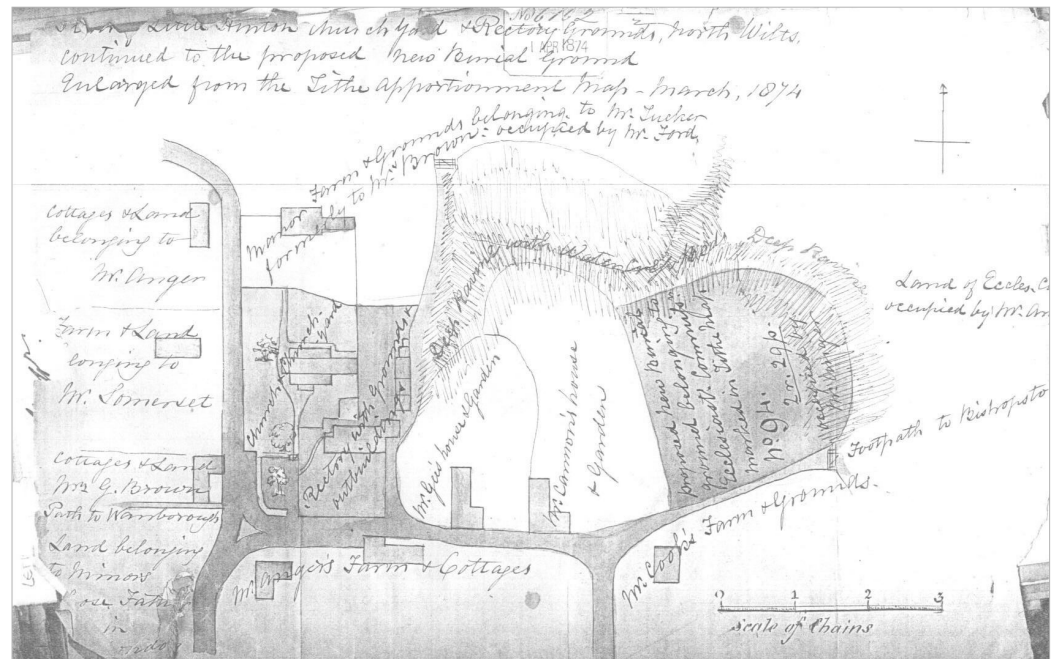 Little Hinton church yard & Rectory Grounds, North Wilts,
continued to the proposed new Burial Ground
Enlarged from the Tithe Apportionment Map - March, 1874
1 APR 1874
Manor Farm & Grounds belonging to Mr. Tucker
formerly to Mr. Brown: occupied by Mr. Ford
Cottages & Land
belonging to
Mr. Anger
Farm & Land
longing to
Mr. Somerset
Cottages & Land
Mrs G. Brown
Path to Wanborough
Land belonging
to Minors
in
Church & Church-
yard
Rectory with Grounds &
outbuildings
Deep Ravine with Water Cress Beds
Deep Ravine
Mr. Gee's house & Garden
Mr. Cannon's house
& Garden
proposed new Burial
ground belonging to
Ecclesiastl. Commrs.
marked in Tithe Map
No. 94. 2r. 29p.
occupied by
Mr. Anger
Land of Eccles. Co
occupied by Mr. An
Footpath to Bishopsto
Mr. Cook's Farm & Grounds.
Mr. Anger's Farm & Cottages
0 1 2 3
Scale of Chains